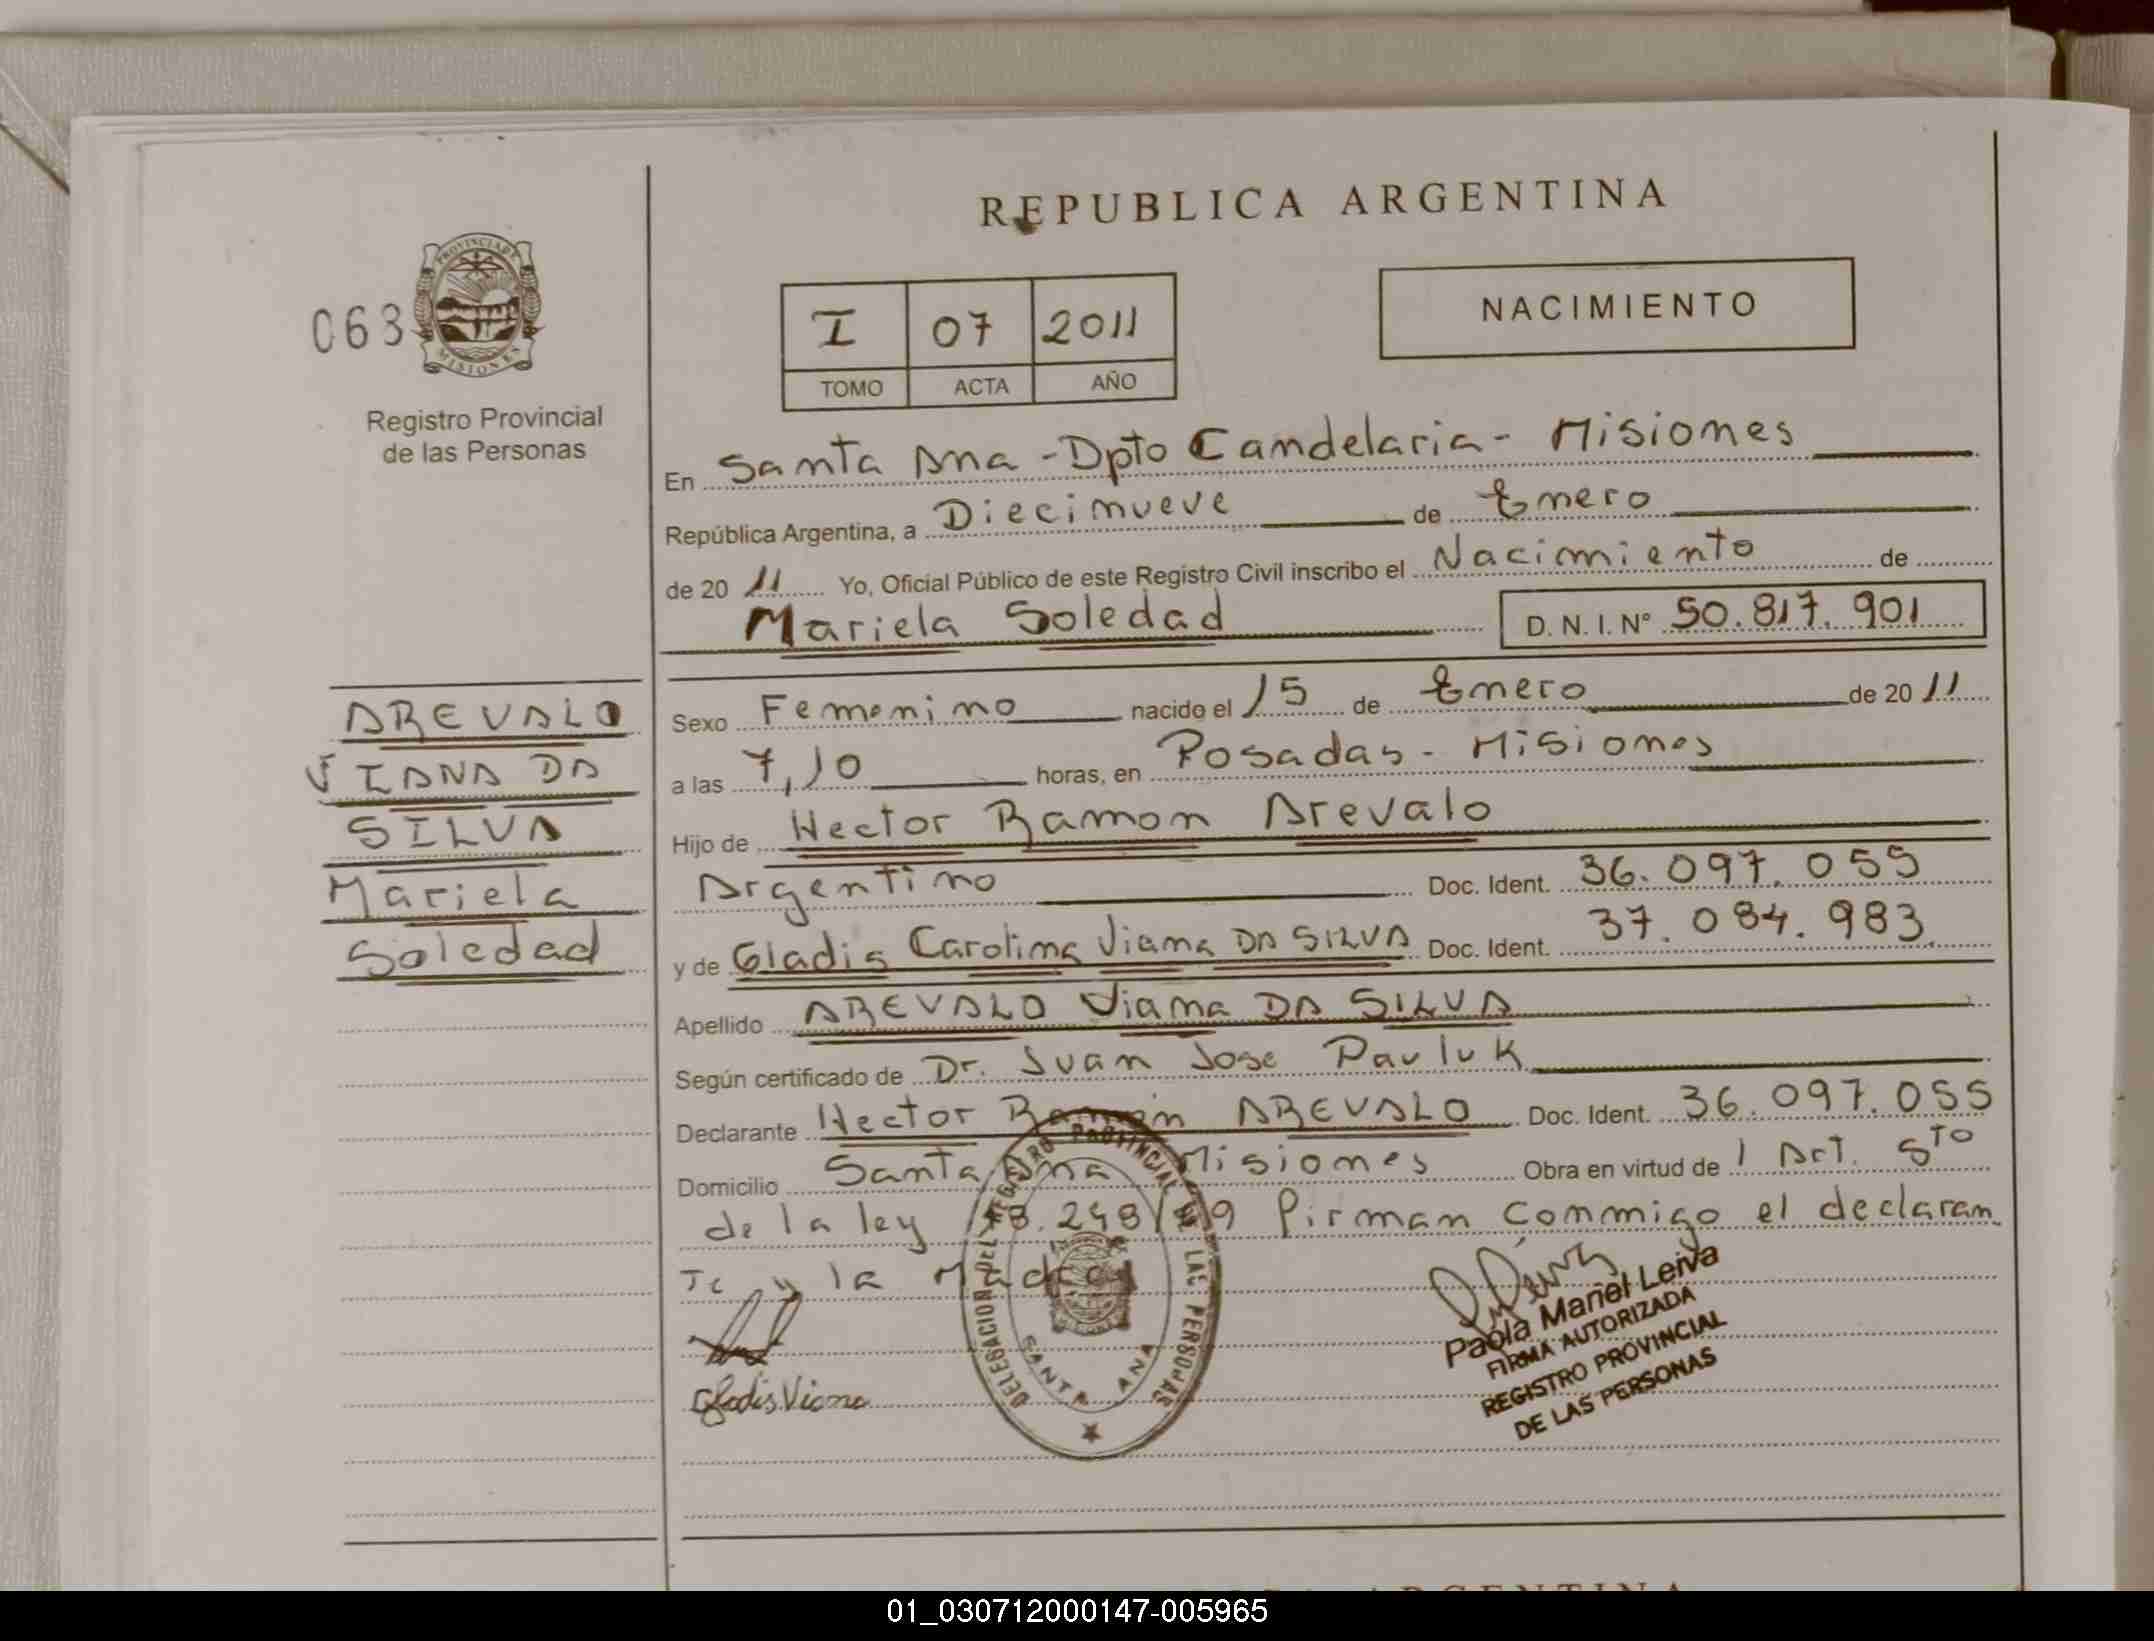 REPUBLICA ARGENTINA
063
PROVINCIA DE
MISIONES
Registro Provincial
de las Personas
I 07 2011
TOMO ACTA AÑO
NACIMIENTO
En Santa Ana - Dpto Candelaria - Misiones
República Argentina, a Diecinueve de Enero
de 20 11 Yo, Oficial Público de este Registro Civil inscribo el Nacimiento de
Mariela Soledad D. N. I. Nº 50.817.901
Sexo Femenino nacido el 15 de Enero de 20 11
a las 7,10 horas, en Posadas - Misiones
Hijo de Hector Ramon Arevalo
Argentino Doc. Ident. 36.097.055
y de Gladis Carolina Viana DA SILVA Doc. Ident. 37.084.983
Apellido AREVALO Viana DA SILVA
Según certificado de Dr. Juan Jose Pauluk
Declarante Hector Ramón AREVALO Doc. Ident. 36.097.055
Domicilio Santa Ana Misiones Obra en virtud de 1 Art. 5to
de la ley 18.248/69 Firman conmigo el declaran
te y la Madre
AREVALO
VIANA DA
SILVA
Mariela
Soledad
Gladis Viana
DELEGACION DEL REGISTRO PROVINCIAL DE LAS PERSONAS
SANTA ANA
Paola Mariel Leiva
FIRMA AUTORIZADA
REGISTRO PROVINCIAL
DE LAS PERSONAS
01_030712000147-005965